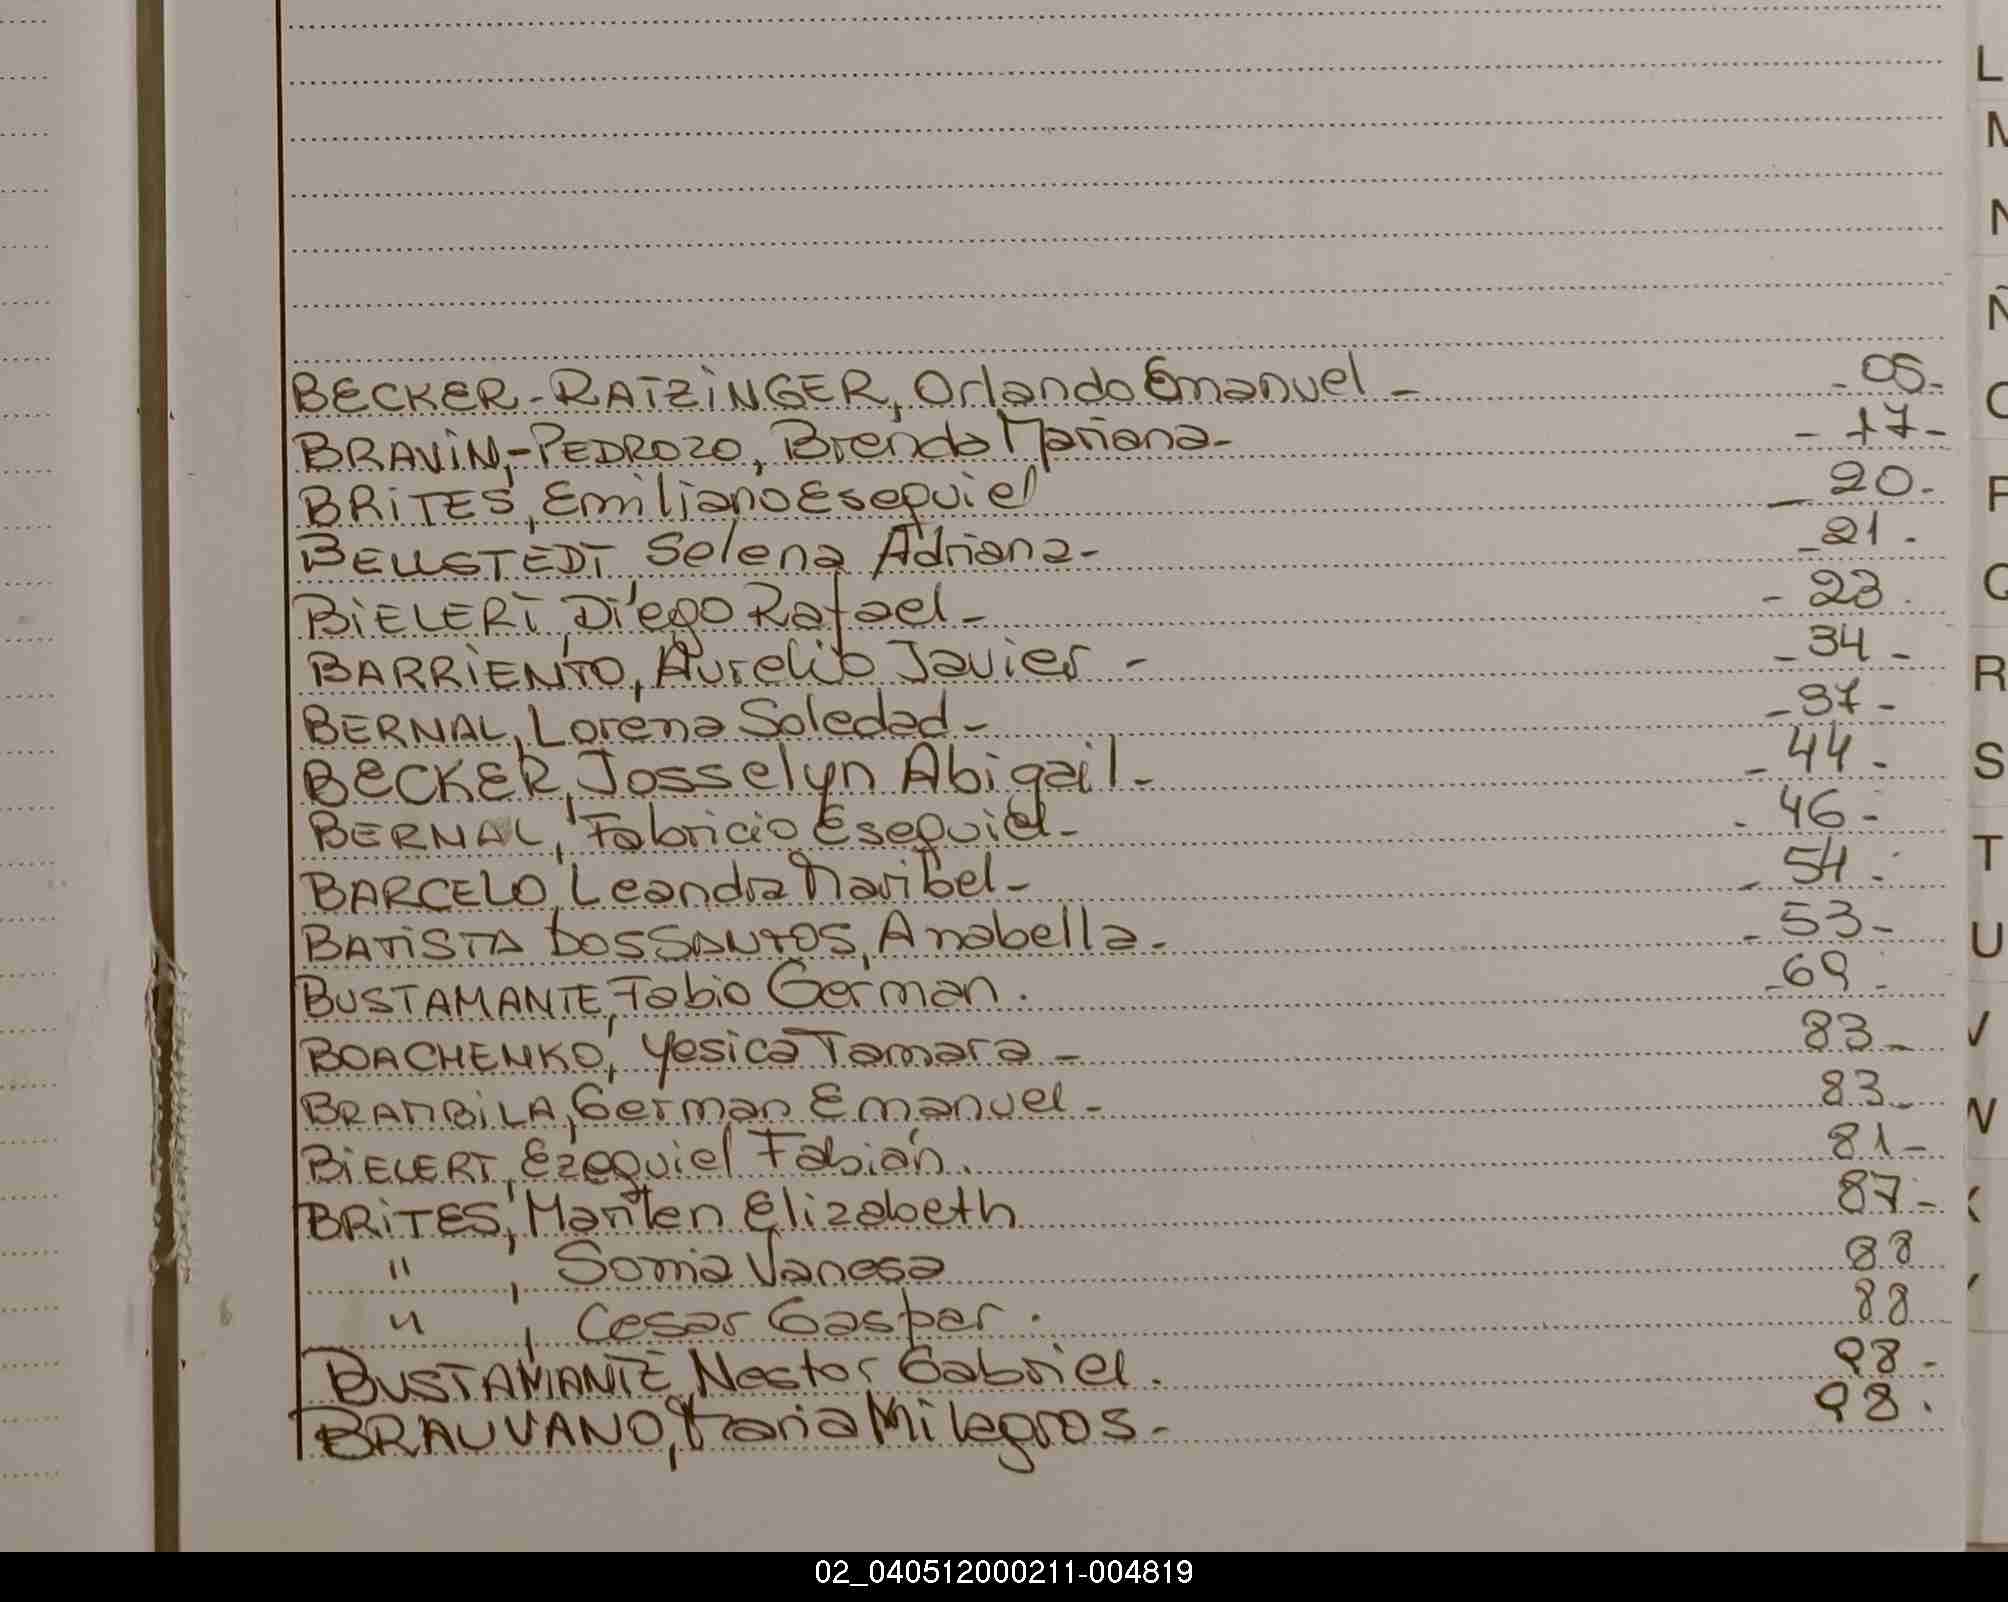 BECKER-RATZINGER, Orlando Emanuel - - 05-
BRAVIN,-PEDROZO, Brenda Mariana- - 17-
BRITES, Emiliano Esequiel - 20-
BELLSTEDT Selena Adriana- -21-
BIELERT, Diego Rafael- - 23.
BARRIENTO, Aurelio Javier - - 34-
BERNAL, Lorena Soledad- -37-
BECKER, Josselyn Abigail- - 44-
BERNAL, Fabricio Esequiel- - 46-
BARCELO, Leandra Maribel- - 54-
BATISTA DOSSANTOS, Anabella- - 53-
BUSTAMANTE, Fabio German. -69-
BOACHENKO, Yesica Tamara- 83-
BRAMBILA, German Emanuel- 83-
BIELERT, Ezequiel Fabián. 81-
BRITES, Marilen Elizabeth 87-
" , Sonia Vanesa 88
" , Cesar Gaspar. 88
BUSTAMANTE, Nestor Gabriel. 98-
BRAUVANO, Maria Milagros- 98.
L
M
N
Ñ
O
P
Q
R
S
T
U
V
W
X
Y
02_040512000211-004819